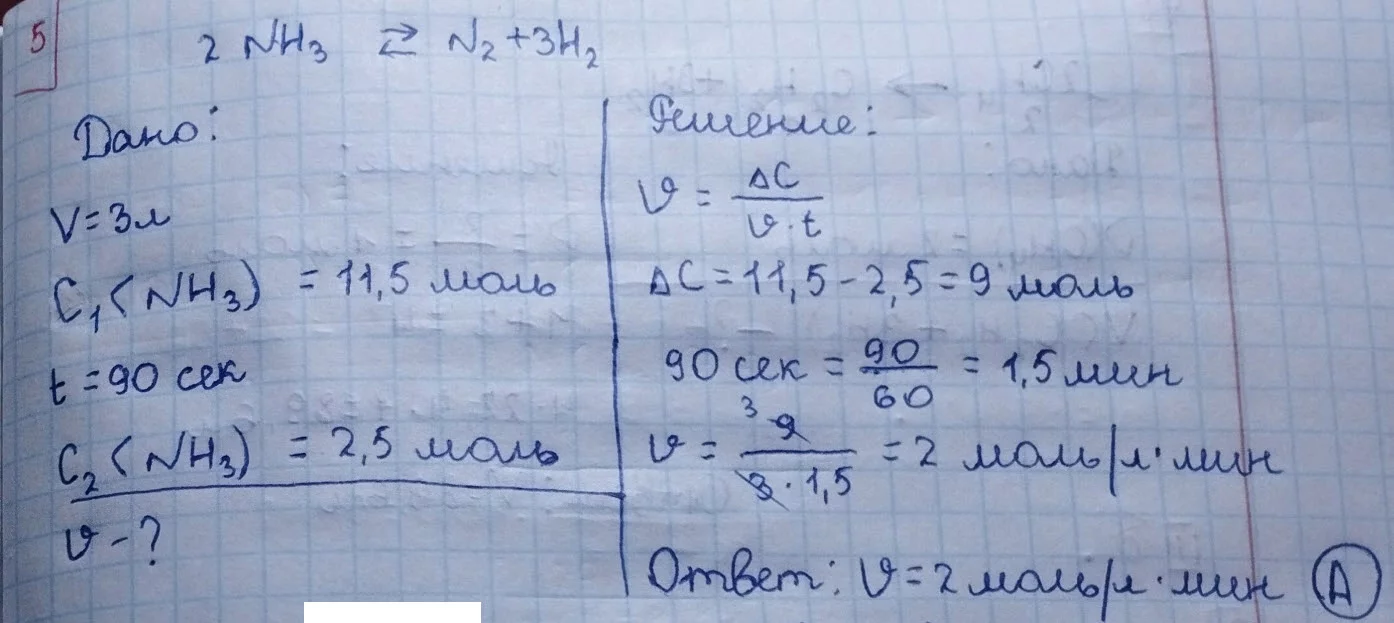 5
2 NH₃ ⇄ N₂+3H₂
Дано:
V=3л
C₁(NH₃) = 11,5 моль
t=90 сек
C₂(NH₃) = 2,5 моль
υ-?
Решение:
υ = ΔC / υ·t
ΔC=11,5-2,5=9 моль
90 сек = 90/60 = 1,5 мин
υ = ³ 9 / 3·1,5 = 2 моль/л·мин
Ответ: υ=2 моль/л·мин А